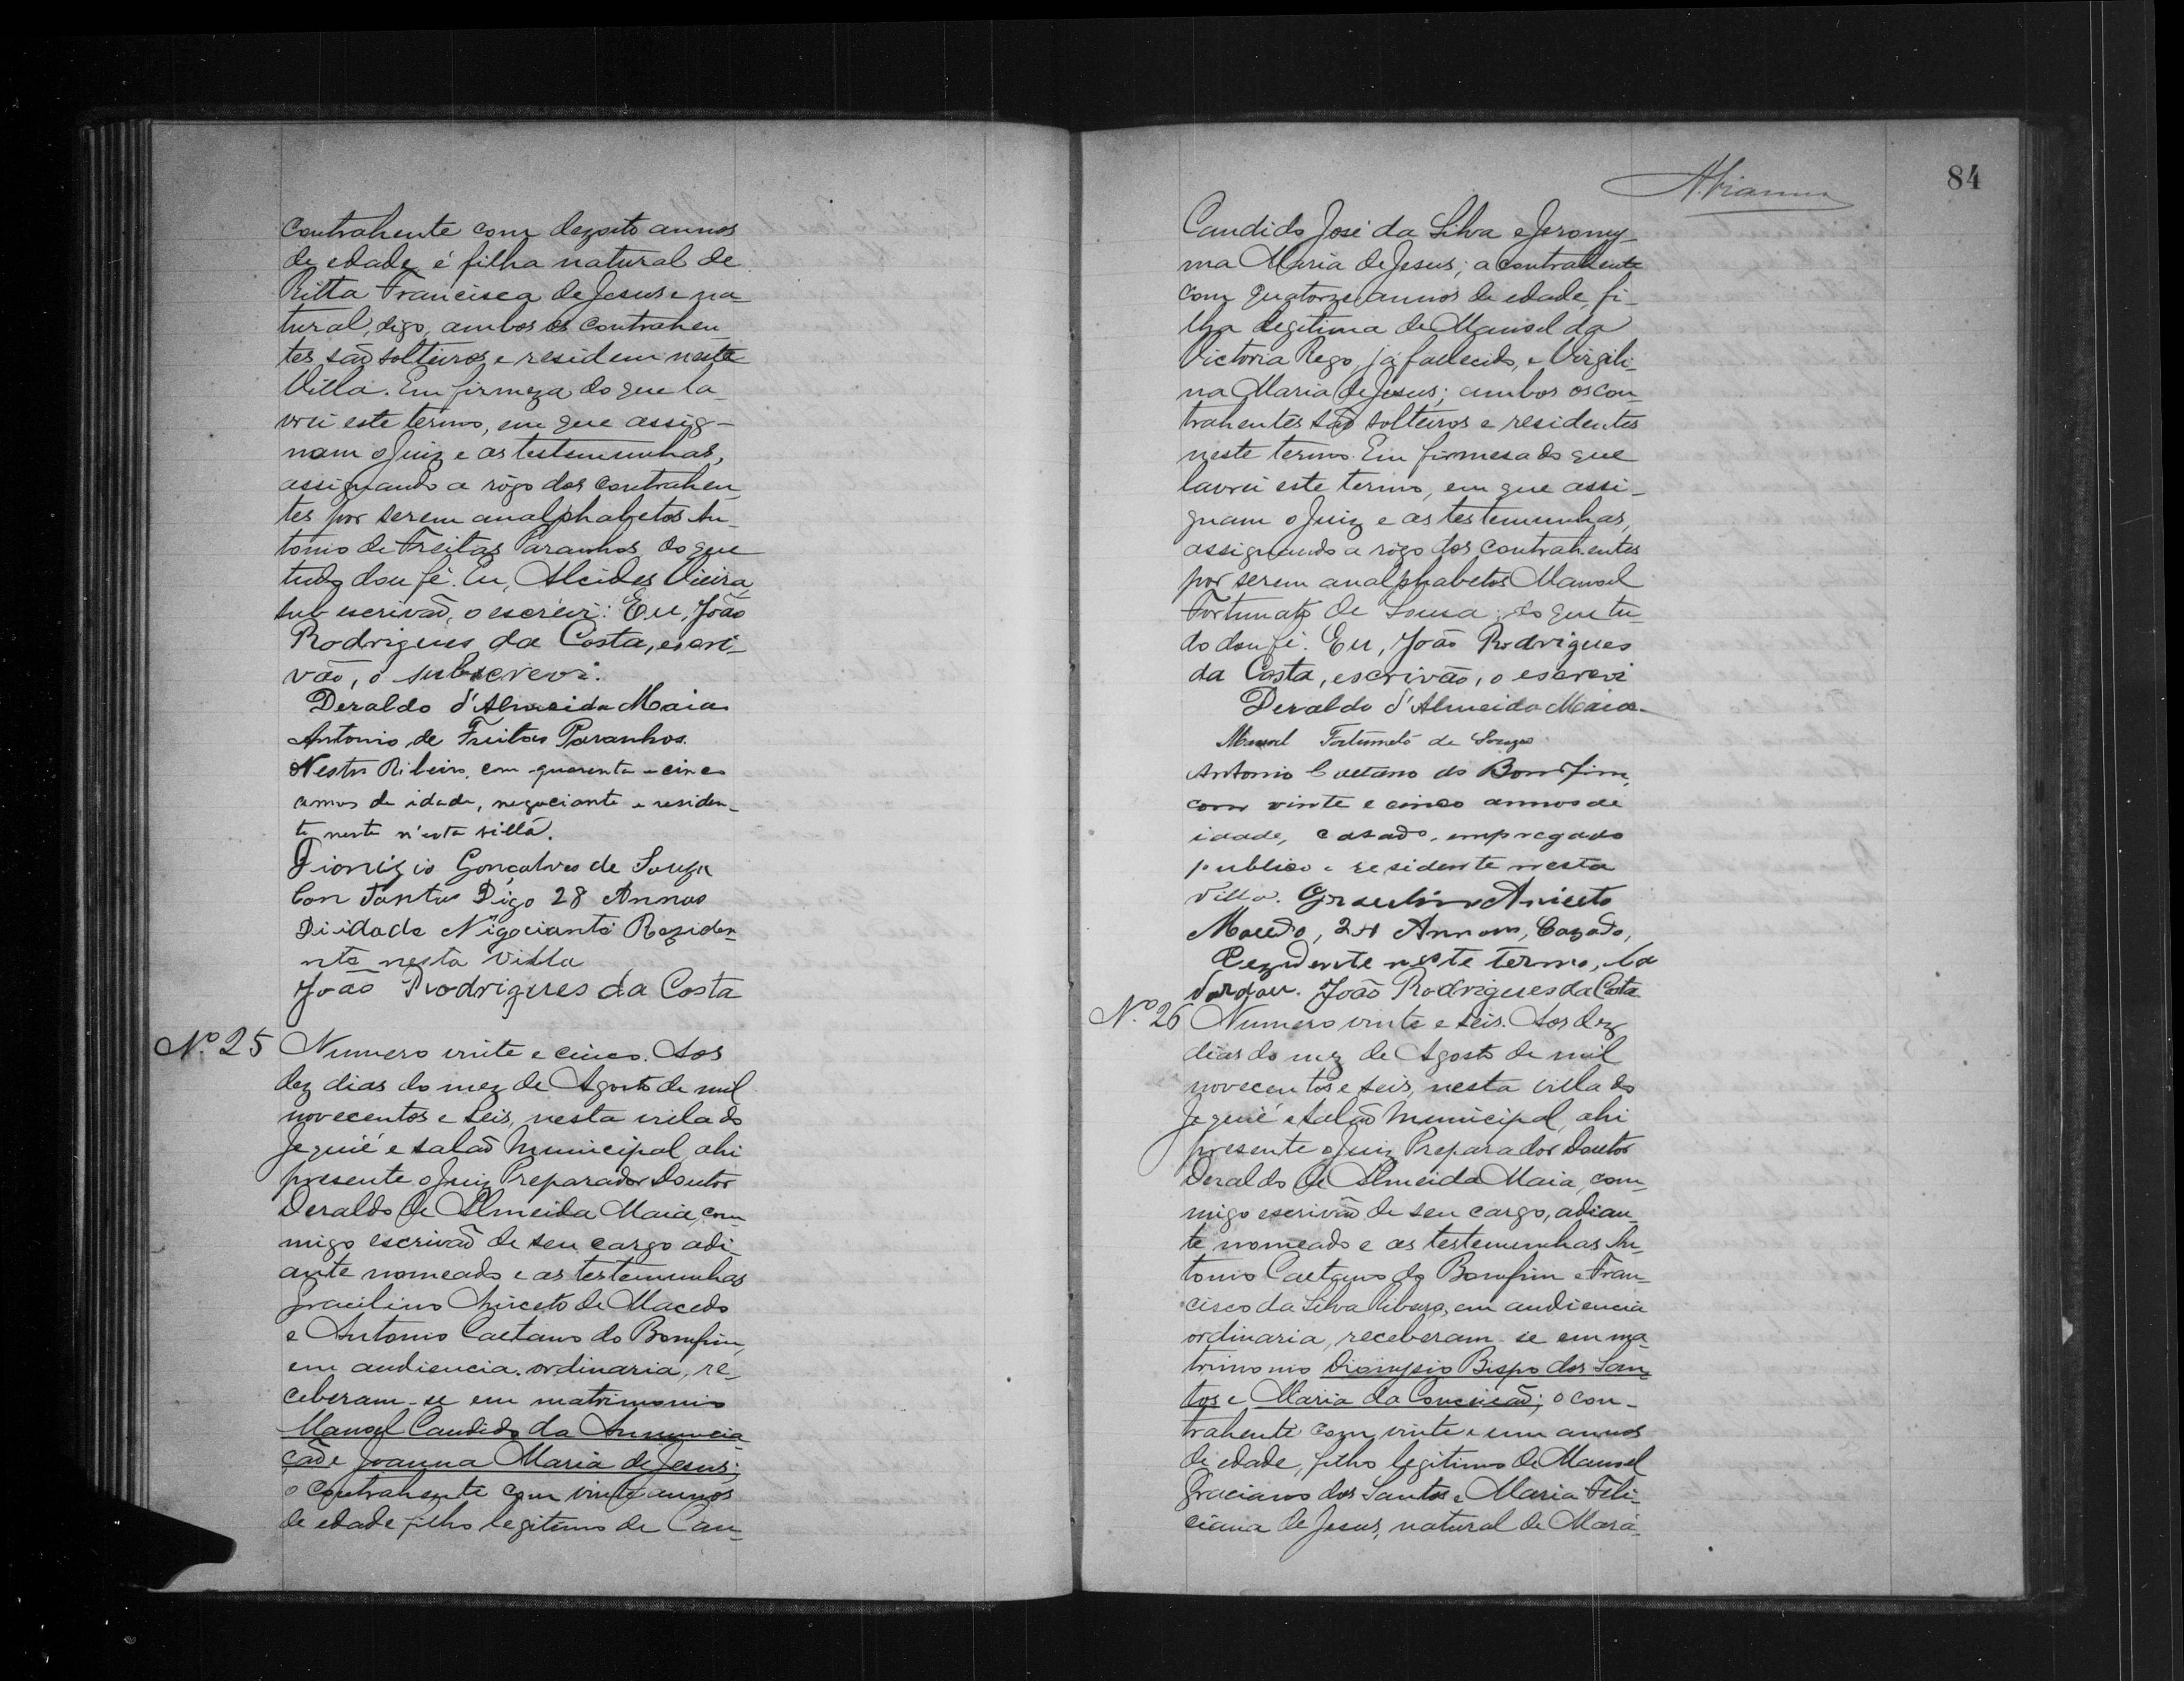 contrahente com dezoito annos
de edade é filha natural de
Ritta Francisca de Jesus e na-
tural, digo, ambos os contrahen-
tes são solteiros e residem nesta
Villa. Em firmeza do que la-
vrei este termo, em que assig-
nam o Juiz e as testemunhas,
assignando a rógo dos contrahen-
tes por serem analphabetos An-
tonio de Freitas Paranhos, do que
tudo dou fé. Eu, Alcides Vieira,
sub escrivão, o escrevi: Eu, João
Rodrigues da Costa, escri-
vão, o subscrevi.
Deraldo d'Almeida Maia
Antonio de Freitas Paranhos.
Nestor Ribeiro, com quarenta e cinco
annos de idade, negociante e residen-
te neste n'esta villa.
Dionizio Gonçalves de Souza
Con Tantos Digo 28 Annos
Di idade Nigocianti Reziden-
nte nesta Villa
João Rodrigues da Costa
Nº 25 Numero vinte e cinco. Aos
dez dias do mez de Agosto de mil
novecentos e seis, nesta villa do
Jequié e salão Municipal, ahi
presente o Juiz Preparador Doutor
Deraldo de Almeida Maia, com-
migo escrivão de seu cargo adi-
ante nomeado e as testemunhas
Gracilino Aniceto de Macedo
e Antonio Caetano do Bomfim,
em audiencia ordinaria, re-
ceberam-se em matrimonio
Manoel Candido da Annuncia-
ção e Joanna Maria de Jesus;
o contrahente com vinte annos
de edade filho legitimo de Can-
84
A. Vianna
Candido José da Silva e Jerony-
ma Maria de Jesus; a contrahente
com quatorze annos de edade, fi-
lha legitima de Manoel da
Victoria Rego, já fallecido, e Virgili-
na Maria de Jesus; ambos os con-
trahentes são solteiros e residentes
neste termo. Em firmesa do que
lavrei este termo, em que assi-
gnam o Juiz e as testemunhas,
assignando a rógo dos contrahentes
por serem analphabetos Manoel
Fortunato de Sousa; do que tu-
do dou fé. Eu, João Rodrigues
da Costa, escrivão, o escrevi
Deraldo d'Almeida Maia
Manoel Fortunato de Souza
Antonio Caetano do Bomfim,
com vinte e cinco annos de
idade, casado, empregado
publico e residente nesta
Villa. Graculino Aniceto
Macedo, 24 Annos, Cazado,
Rezidente neste termo, la
vrador. João Rodrigues da Costa
Nº 26 Numero vinte e seis. Aos dez
dias do mez de Agosto de mil
novecentos e seis, nesta villa do
Jequié e salão Municipal, ahi
presente o Juiz Preparador Doutor
Deraldo de Almeida Maia, com-
migo escrivão de seu cargo, adian-
te nomeado e as testemunhas An-
tonio Caetano do Bomfim e Fran-
cisco da Silva Ribeiro, em audiencia
ordinaria, receberam-se em ma-
trimonio Dionysio Bispo dos San-
tos e Maria da Conceição; o con-
trahente com vinte e um annos
de edade, filho legitimo de Manoel
Graciano dos Santos e Maria Feli-
ciana de Jesus, natural de Mará-